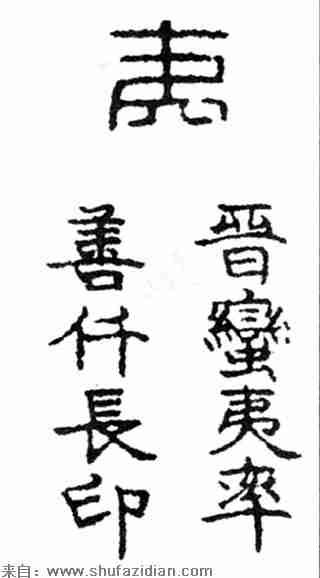 夷
晋蠻夷率
善仟長印
来自：www.shufazidian.com